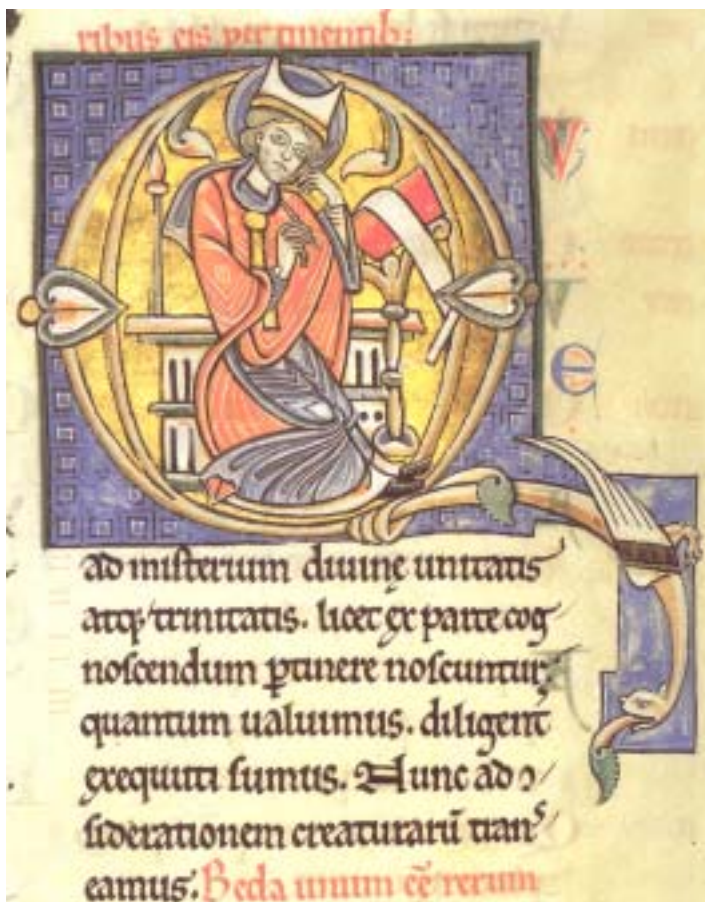 ribus eis pertinentib:
Q V
V
E
ad misterium diuinę unitatis
atq; trinitatis. licet ex parte cog
noscendum ꝑtinere noscuntur;
quantum ualuimus. diligent̄
exequuti sumus. Nunc ad ↄ
siderationem creaturarū tran⁹
eamus. Beda unum eē rerum